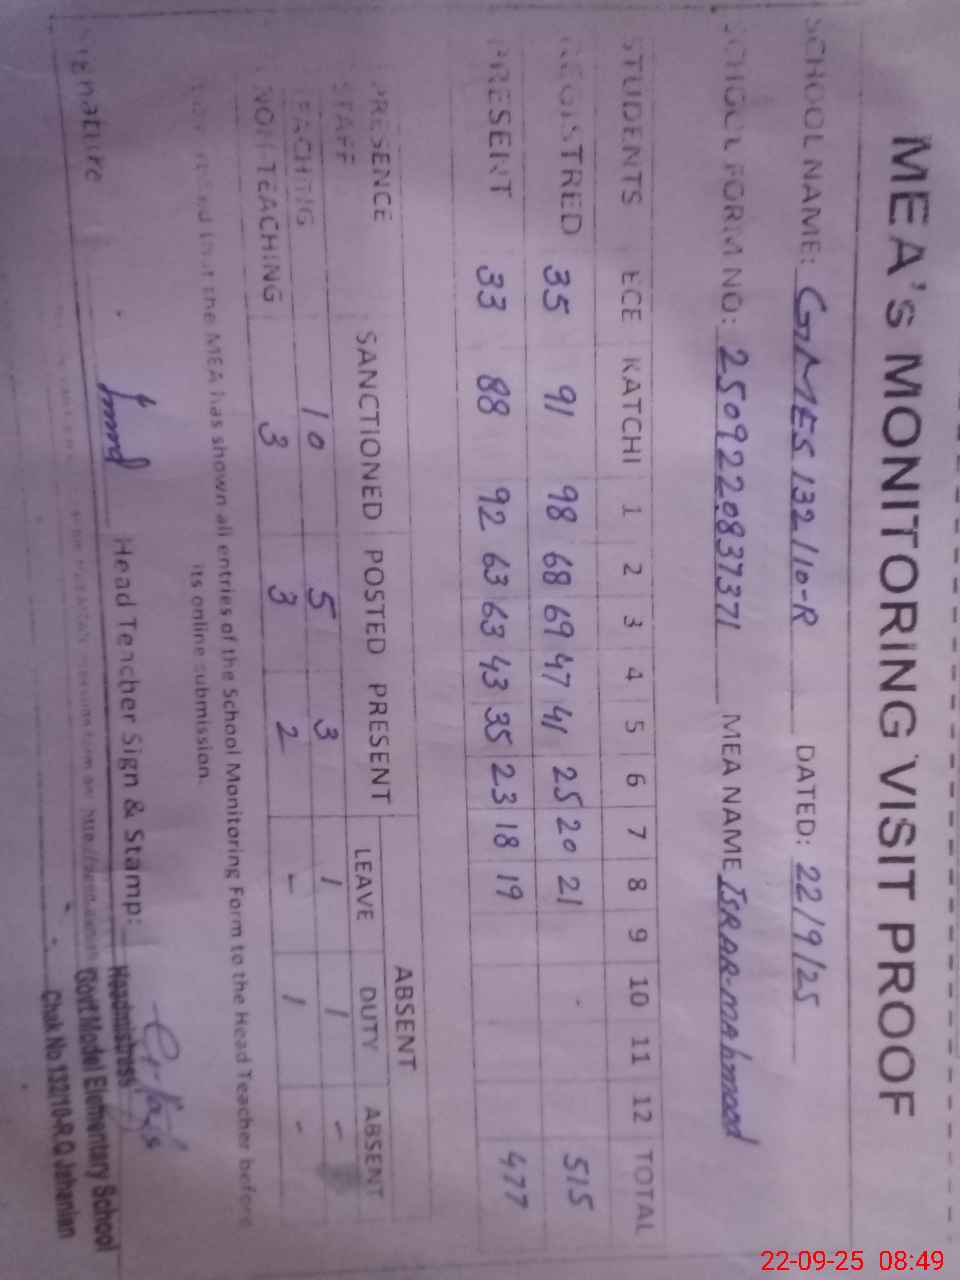 MEA's MONITORING VISIT PROOF
SCHOOL NAME: GMES 132/10-R DATED: 22/9/25
SCHOOL FORM NO: 2509220837371 MEA NAME ISRAR-mahmood
STUDENTS ECE KATCHI 1 2 3 4 5 6 7 8 9 10 11 12 TOTAL
REGISTRED 35 91 98 68 69 47 41 25 20 21 515
PRESENT 33 88 92 63 63 43 35 23 18 19 477
ABSENT
PRESENCE SANCTIONED POSTED PRESENT LEAVE DUTY ABSENT
STAFF
TEACHING 10 5 3 1 1 -
NON TEACHING 3 3 2 - 1 -
that the MEA has shown all entries of the School Monitoring Form to the Head Teacher before
its online submission.
Signature Head Teacher Sign & Stamp:
Headmistress
Govt.Model Elementary School
Chak No.132/10-R.Q Jahanian
22-09-25 08:49